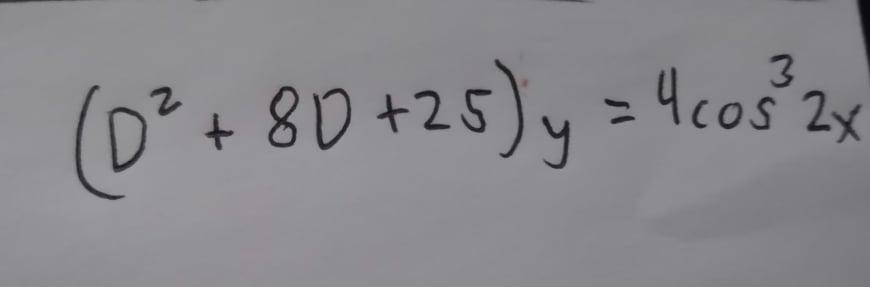 (D² + 8D + 25) y = 4cos³ 2x